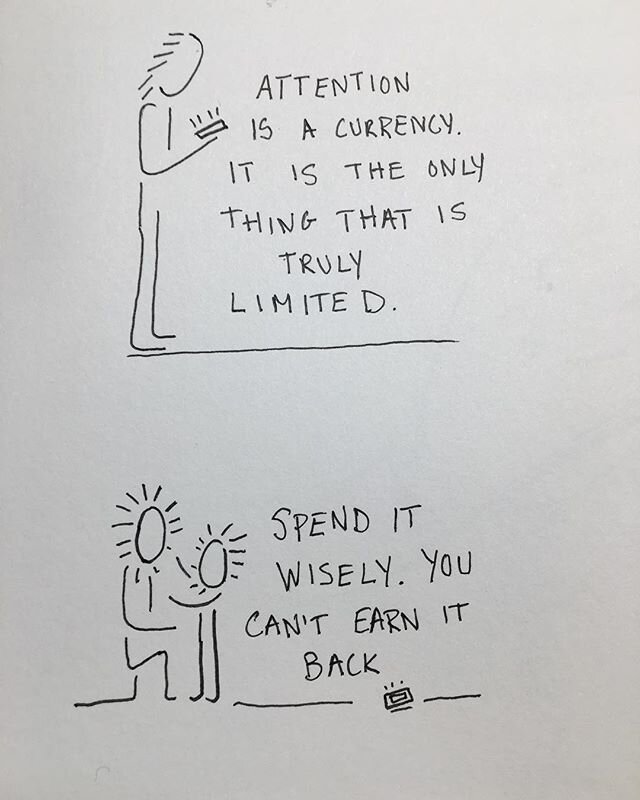 ATTENTION
IS A CURRENCY.
IT IS THE ONLY
THING THAT IS
TRULY
LIMITED.
SPEND IT
WISELY. YOU
CAN'T EARN IT
BACK